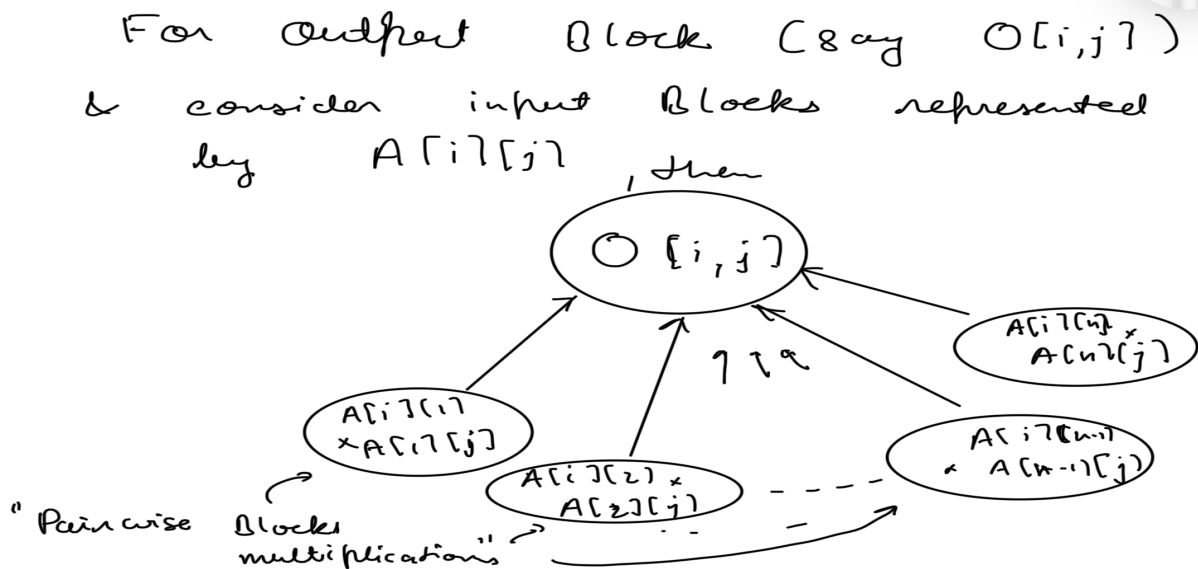 For output Block (say O[i,j])
& consider input Blocks represented
by A[i][j]
, then
O [i, j]
A[i][n] ×
A[n][j]
A[i][1]
× A[1][j]
A[i][2] ×
A[2][j]
A[i][n-1]
× A[n-1][j]
"Pairwise Blocks
multiplications"